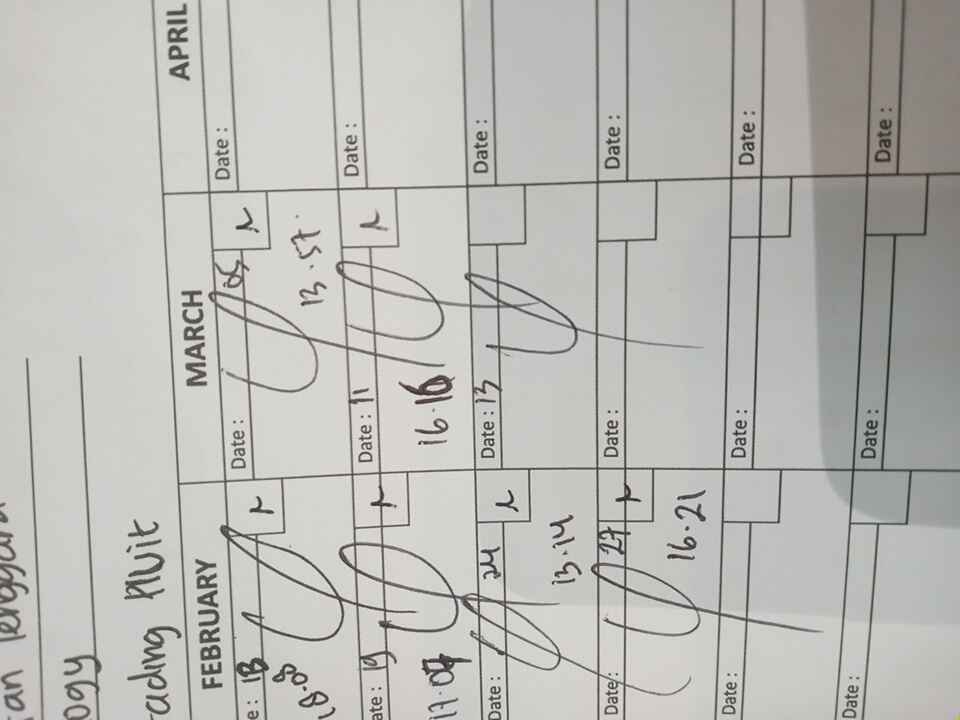 ogy
ading Pluit
FEBRUARY MARCH APRIL
e : 13 Date : 05 Date :
18.08 13.57.
ate : 19 Date : 11 Date :
17.07 16.16
Date : 24 Date : 13 Date :
13.14
Date : 27 Date : Date :
16.21
Date : Date : Date :
Date : Date : Date :